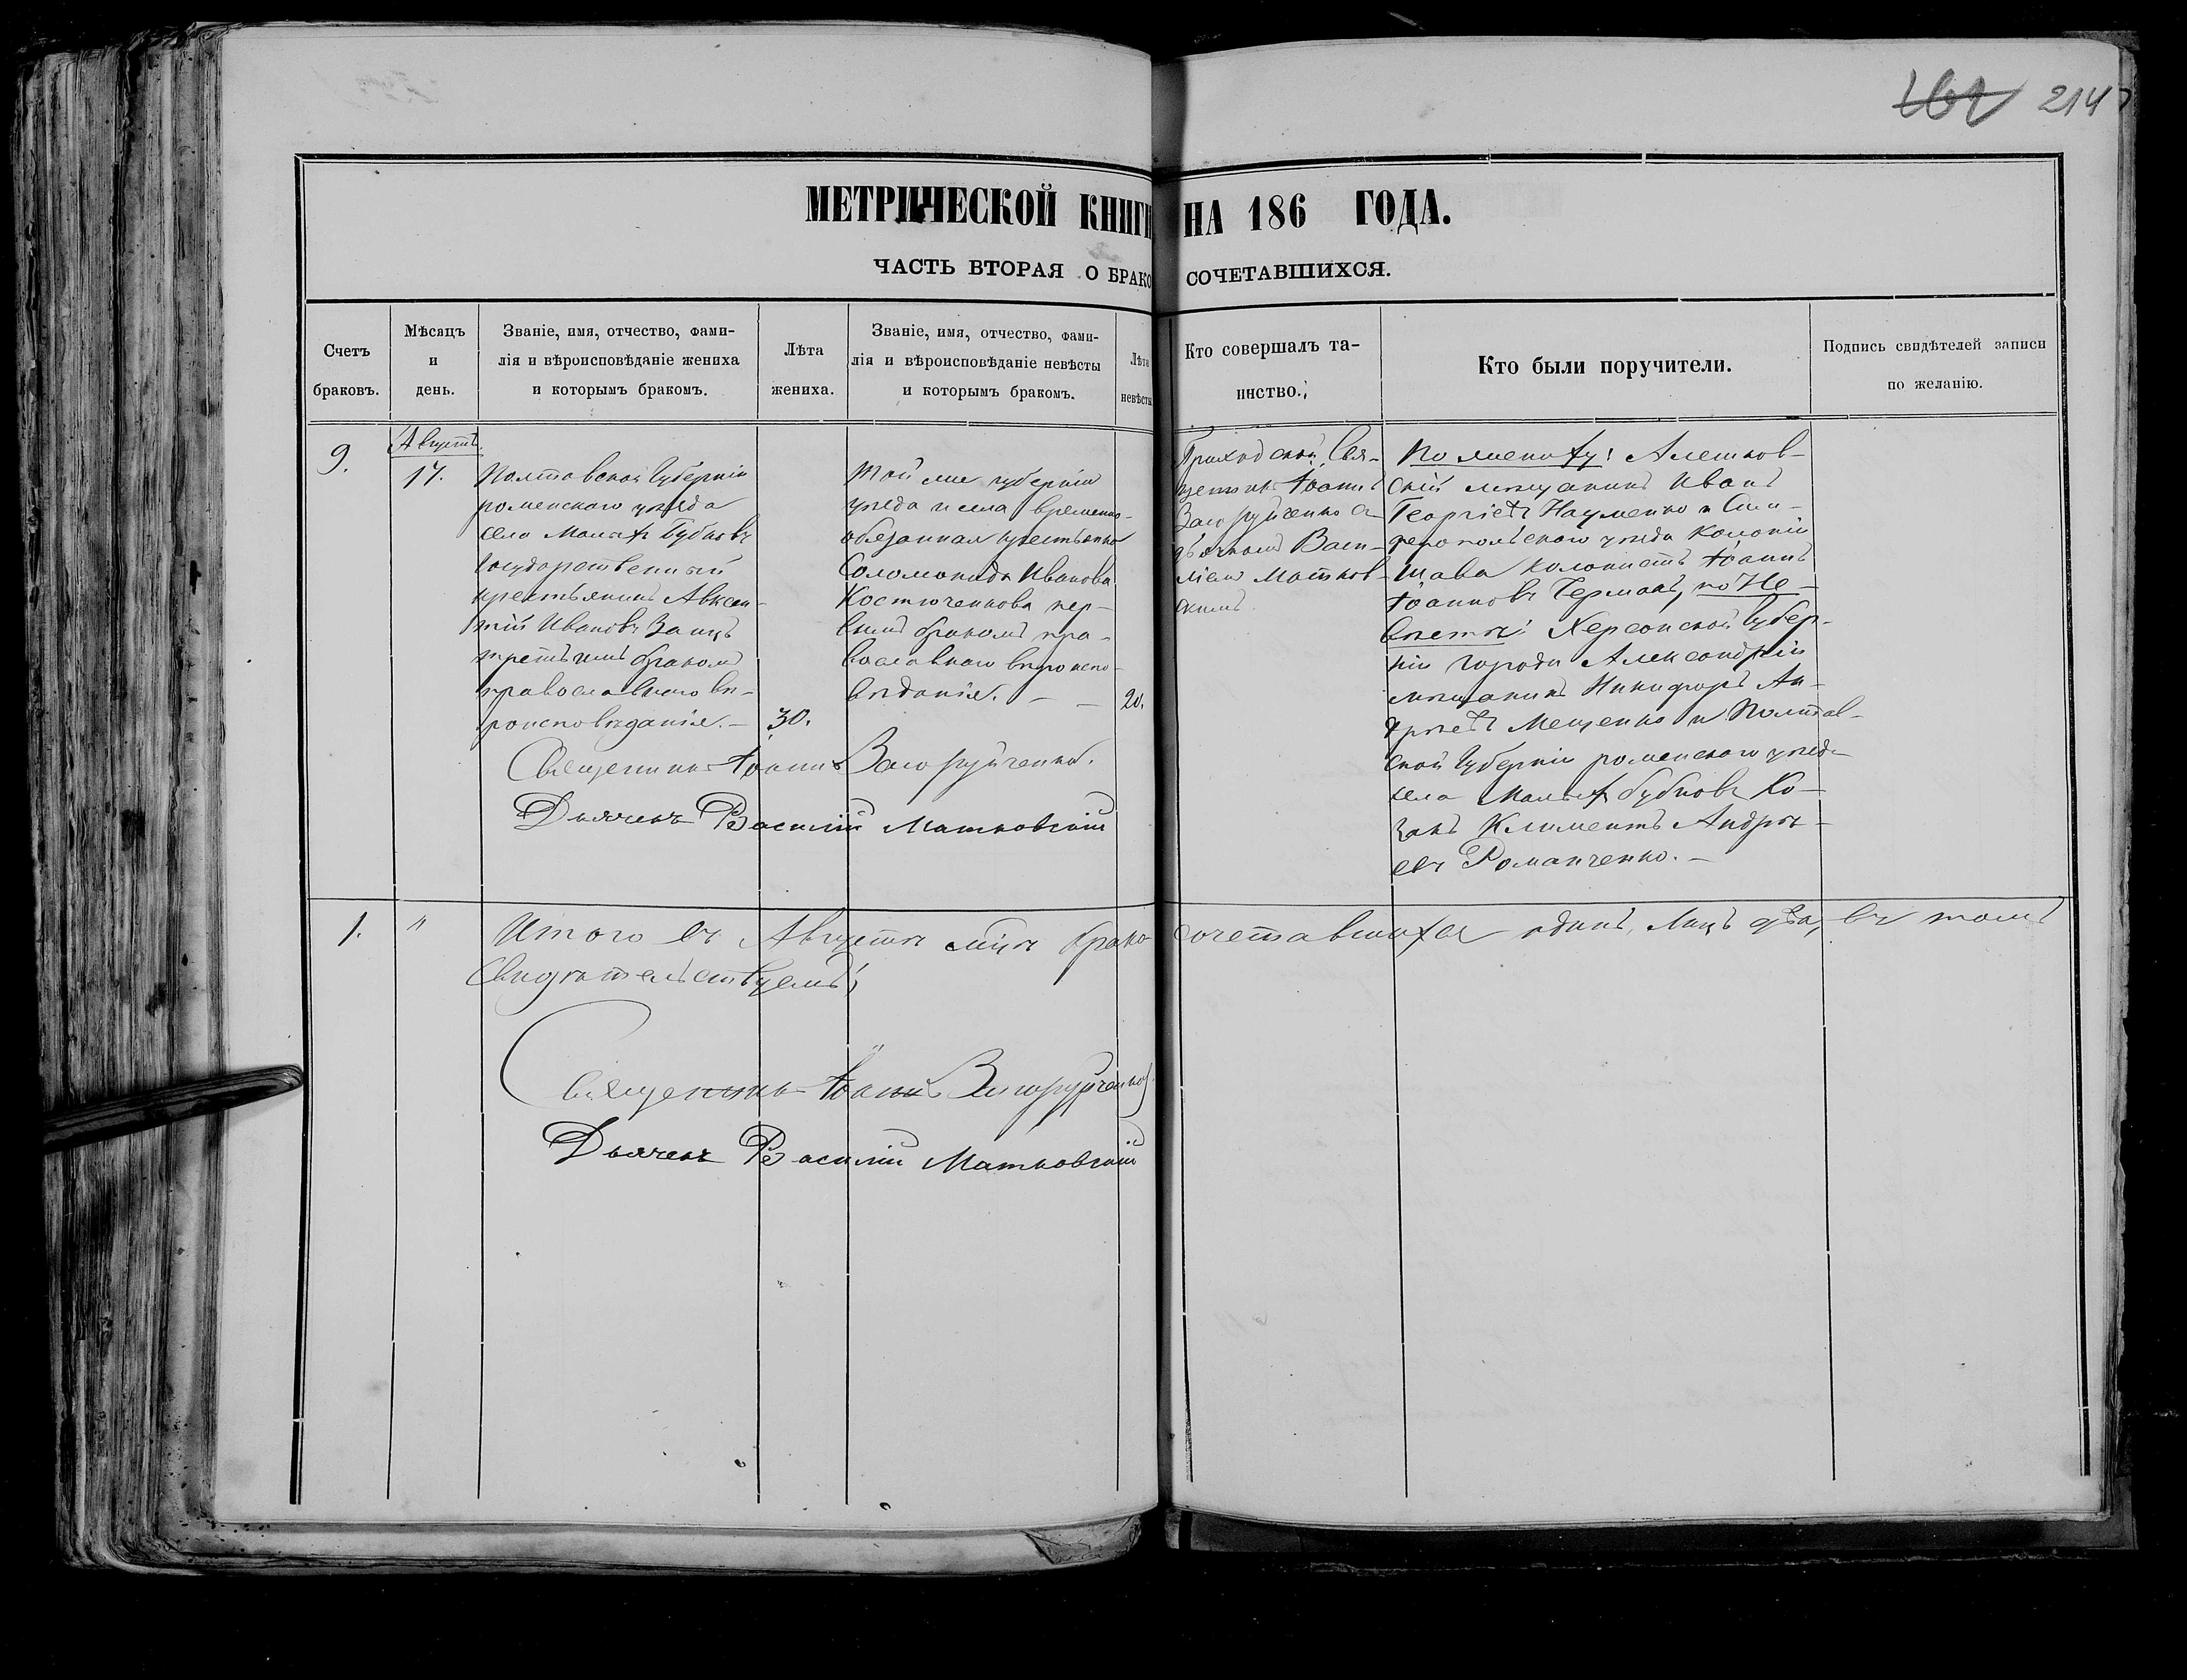 214
МЕТРИЧЕСКОЙ КНИГИ НА 186 ГОДА.
ЧАСТЬ ВТОРАЯ О БРАКОСОЧЕТАВШИХСЯ.
Счетъ браковъ.
Мѣсяцъ и день.
Званіе, имя, отчество, фами-
лія и вѣроисповѣданіе жениха
и которымъ бракомъ.
Лѣта
жениха.
Званіе, имя, отчество, фами-
лія и вѣроисповѣданіе невѣсты
и которымъ бракомъ.
Лѣта
невѣсты
Кто совершалъ та-
инство.
Кто были поручители.
Подпись свидѣтелей записи
по желанію.
9.
Августъ
17.
Полтавской губерніи
роменскаго уѣзда
села Малыхъ Бубновъ
государственный
крестьянинъ Авксен-
тій Ивановъ Заицъ
третьимъ бракомъ
православнаго вѣ-
роисповѣданія.-
30.
Той же губерніи
уѣзда и села временно-
обязанная крестьянка
Соломонида Иванова
Костюченкова пер-
вымъ бракомъ пра-
вославнаго вѣроиспо-
вѣданія. -
20.
Приходской Свя-
щенникъ Іоаннъ
Загоруйченко съ
дьячкомъ Васи-
ліемъ Матков-
скимъ.
По жениху: Алешков-
скій мѣщанинъ Иванъ
Георгіевъ Науменко и Сим-
феропольскаго уѣзда колоніи
колонистъ Іоаннъ
Іоанновъ Германъ, по Не-
вѣстѣ: Херсонской губер-
ніи города Александріи
мѣщанинъ Никифоръ Ан-
дреевъ Мещенко и Полтав-
ской губерніи роменскаго уѣзда
села Малыхъ бубновъ Ко-
закъ Климентъ Андре-
евъ Романченко. -
Священникъ Іоаннъ Загоруйченко.
Дьячекъ Василій Матковскій
1. " Итого въ Августѣ м-цѣ бракосочетавшихся одинъ, лицъ два, въ томъ
свидѣтельствуемъ:
Священникъ Іоаннъ Загоруйченко
Дьячекъ Василій Матковскій